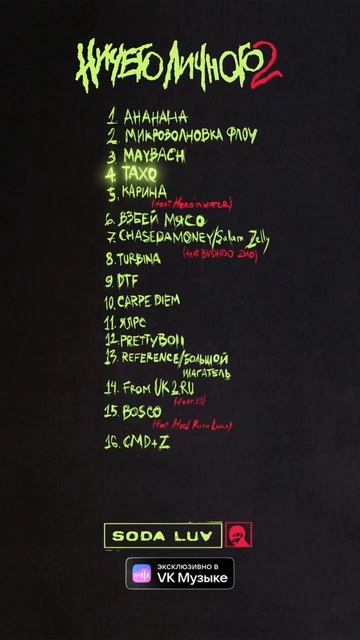 НИЧЕГО ЛИЧНОГО 2
1. АНАНАНА
2. МИКРОВОЛНОВКА ФЛОУ
3. MAYBACH
4. TAXO
5. КАРИНА
(feat. Heroinwater)
6. ВЗБЕЙ МЯСО
7. CHASEDAMONEY/Salam Zelly
(feat. BUSHIDO ZHO)
8. TURBINA
9. DTF
10. CARPE DIEM
11. ЯЛРС
12. PRETTYBOII
13. REFERENCE/БОЛЬШОЙ
ШАГАТЕЛЬ
14. From UK 2 RU
15. BOSCO
16. CMD+Z
SODA LUV
ЭКСКЛЮЗИВНО В
VK Музыке